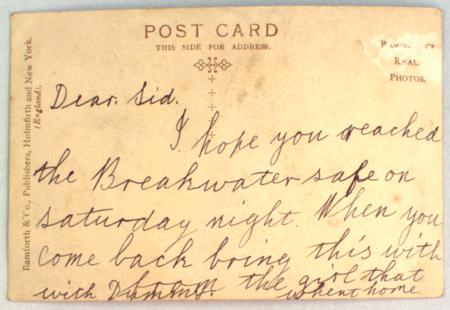 POST CARD
THIS SIDE FOR ADDRESS.
REAL
PHOTOS.
Bamforth & Co., Publishers, Holmfirth and New York.
(England).
Dear. Sid.
I hope you reached
the Breakwater safe on
saturday night. When you
come back bring this with
with the girl that
went home